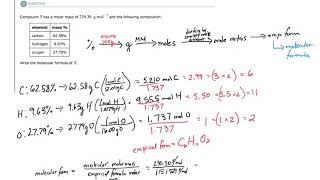 QUESTION
Compound X has a molar mass of 230.30 g·mol⁻¹ and the following composition:
element mass %
carbon 62.58%
hydrogen 9.63%
oxygen 27.79%
Write the molecular formula of X.
assume 100g
% → g → MM → moles → mole ratios → emp form
→ molecular formula
C: 62.58% → 62.58g C (1 mol C / 12.01g C) = 5.210 mol C / 1.737 = 2.99 = (3 × 2) = 6
H: 9.63% → 9.63g H (1 mol H / = 9.555 mol H / 1.737 = 5.50 = (5.5 × 2) = 11
O: 27.79% → 27.79g O (1 mol O / 16.00g O) = 1.737 mol O / 1.737 = 1 = (1 × 2) = 2
empirical form = C₆H₁₁O₂
molecular form = molecular molar mass / empirical formula = 230.30 g/mol / =